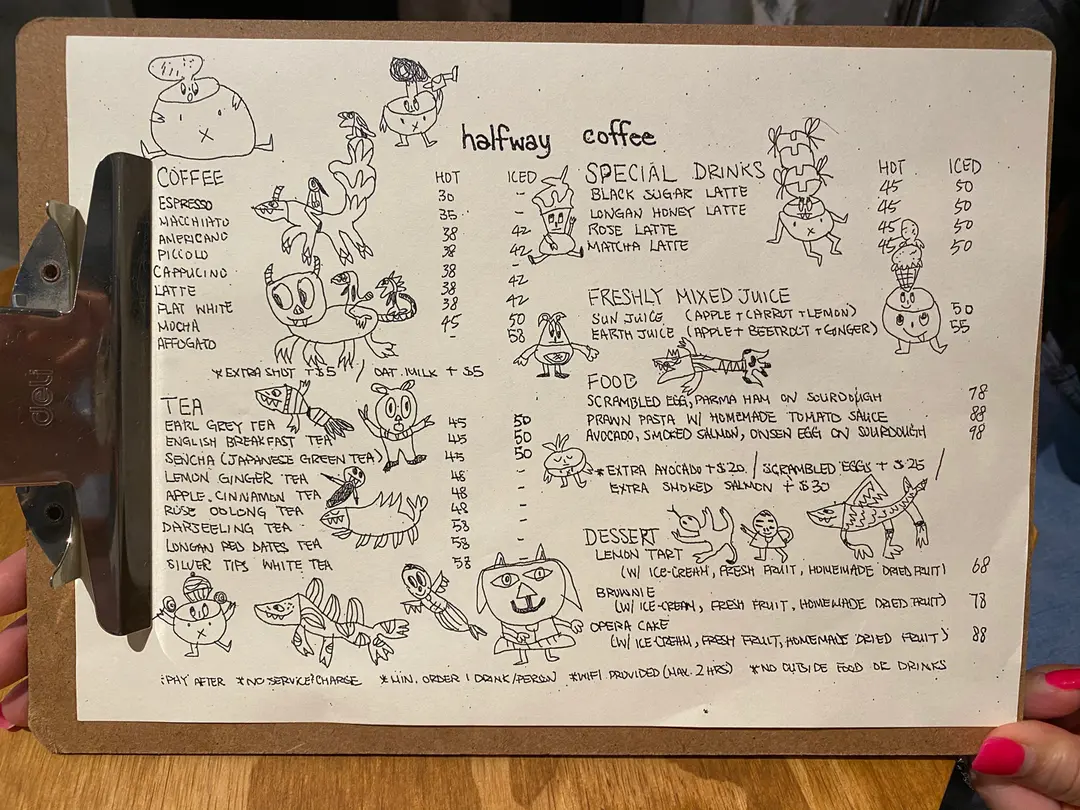 halfway coffee
COFFEE HOT ICED
ESPRESSO 30
MACCHIATO 35 -
AMERICANO 38 42
PICCOLO 38 42
CAPPUCINO 38 -
LATTE 38 42
FLAT WHITE 38 42
MOCHA 45 50
AFFOGATO - 58
*EXTRA SHOT +$5 / OAT MILK +$5
TEA
EARL GREY TEA 45 50
ENGLISH BREAKFAST TEA 45 50
SENCHA (JAPANESE GREEN TEA) 45 50
LEMON GINGER TEA 48 -
APPLE CINNAMON TEA 48 -
ROSE OOLONG TEA 48 -
DARJEELING TEA 58 -
LONGAN RED DATES TEA 58 -
SILVER TIPS WHITE TEA 58 -
SPECIAL DRINKS HOT ICED
BLACK SUGAR LATTE 45 50
LONGAN HONEY LATTE 45 50
ROSE LATTE 45 50
MATCHA LATTE 45 50
FRESHLY MIXED JUICE
SUN JUICE (APPLE+CARROT+LEMON) 50
EARTH JUICE (APPLE+BEETROOT+GINGER) 55
FOOD
SCRAMBLED EGG, PARMA HAM ON SOURDOUGH 78
PRAWN PASTA W/ HOMEMADE TOMATO SAUCE 88
AVOCADO, SMOKED SALMON, ONSEN EGG ON SOURDOUGH 98
*EXTRA AVOCADO +$20 / SCRAMBLED EGGS +$25 /
EXTRA SMOKED SALMON +$30
DESSERT
LEMON TART
(W/ ICE-CREAM, FRESH FRUIT, HOMEMADE DRIED FRUIT) 68
BROWNIE
(W/ ICE-CREAM, FRESH FRUIT, HOMEMADE DRIED FRUIT) 78
OPERA CAKE
(W/ ICE-CREAM, FRESH FRUIT, HOMEMADE DRIED FRUIT) 88
*PAY AFTER *NO SERVICE CHARGE *MIN. ORDER 1 DRINK/PERSON *WIFI PROVIDED (MAX. 2 HRS) *NO OUTSIDE FOOD OR DRINKS
deli